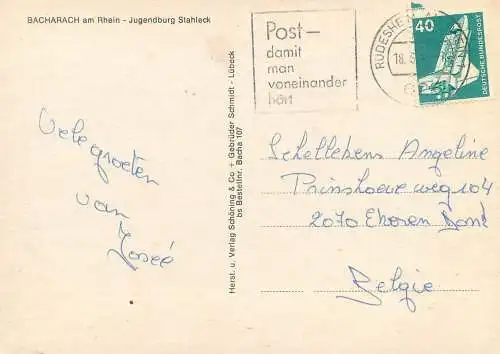 BACHARACH am Rhein - Jugendburg Stahleck
Post-
damit
man
voneinander
hört
RÜDESHEIM
18.
40
DEUTSCHE BUNDESPOST
Vele groeten
van
Josée
Herst. u. Verlag Schöning & Co + Gebrüder Schmidt - Lübeck
bs Bestellnr. Bacha 107
Schellekens Angeline
Prinshoeveweg 104
2070 Ekeren Donk
Belgie